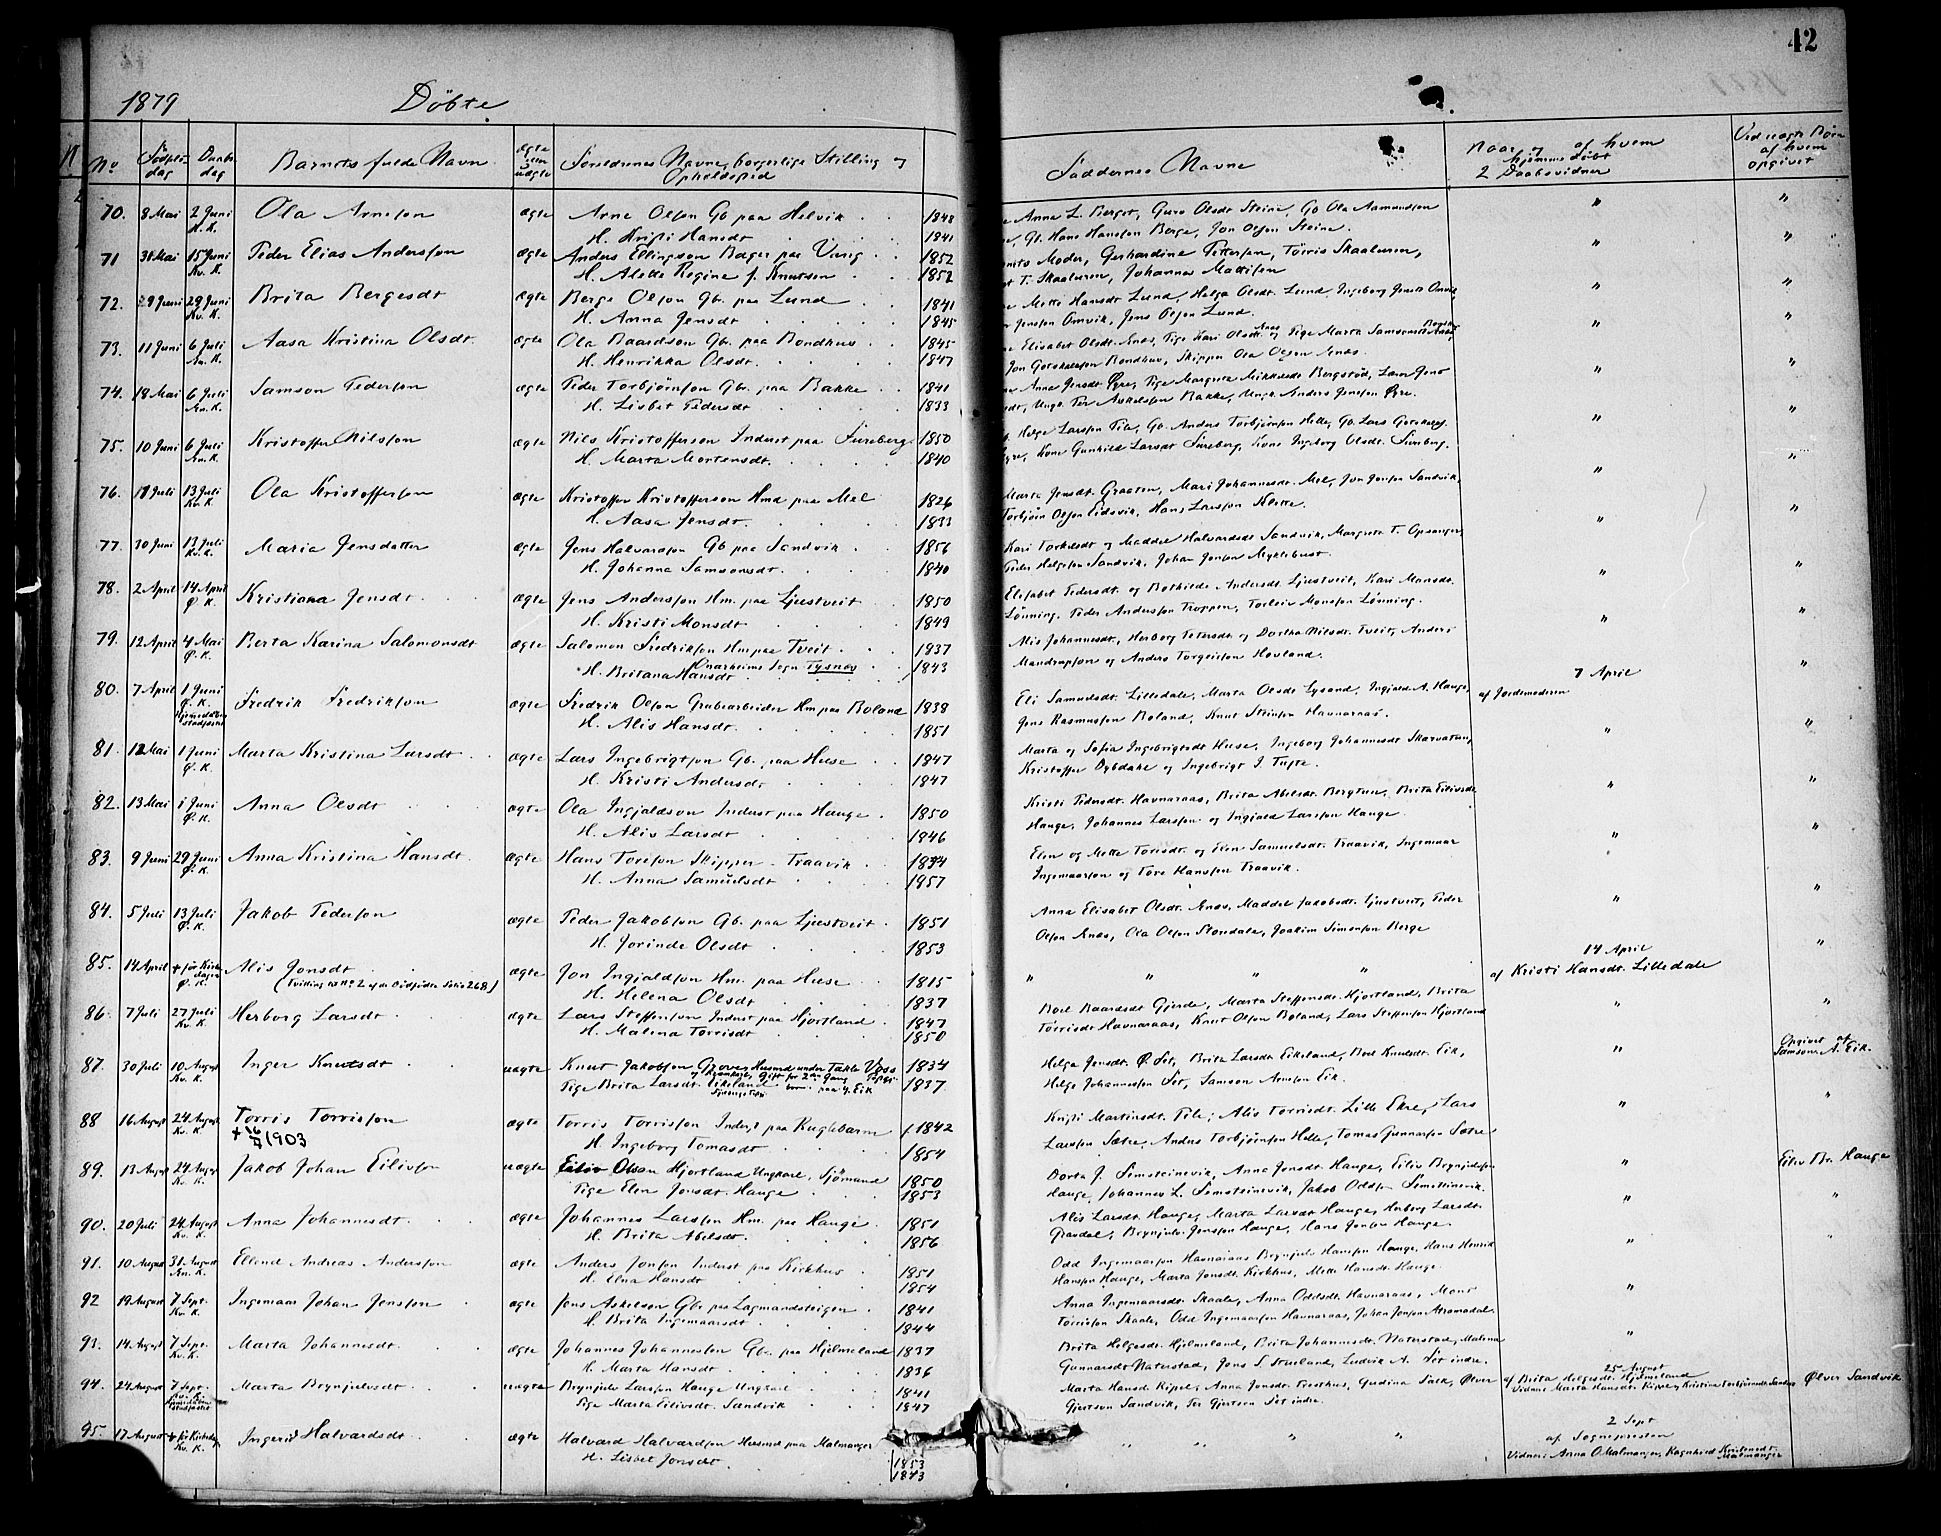 42
1879 Döbte
No Fødsels dag Daabs dag Barnets fulde Navn ægte eller uægte Forældrenes Navne, borgerlige Stilling og Opholdssted Faddernes Navne Naar og af hvem hjemmedøbt 2 Daabsvidner Ved uægte Børn af hvem opgivet
70. 8 Mai 2 Juni Ola Arneson ægte Arne Olson Gb paa Helvik 1848 Anna L. Berget, Guro Olsdt Steine, Gb Ola Aamundson " "
H. K. H. Kristi Hansdt 1841 Gb. Hans Hansson Berge, Jon Olson Steine.
71 31 Mai 15 Juni Peder Elias Andersson ægte Anders Ellingson Bager paa Vung 1852 Moder, Gerhardine Pettersen, Törris Skaaluren, " "
Kv. K. H. Alette Regine f. Knutsen 1852 T. Skaaluren, Johannes Mattison
72. 29 Juni Brita Bergesdt ægte Berge Olson Gb. paa Lund 1841 Mette Hansdt Lund, Helga Olsdt. Lund, Ingeborg Jensdt Omvik, " "
Kv. K. H. Anna Jensdt 1845 Jensson Omvik, Jens Olson Lund.
73. 11 Juni 6 Juli Aasa Kristina Olsdt. ægte Ola Baardson Gb. paa Bondhus 1845 Elisabet Olsdt. Ænes, Pige Kari Olsdt. Ænes og Pige Marta Samsonsdt " "
Æn. K. H. Henrikka Olsdt. 1847 Jon Gotskalkson Bondhus, Skipper Ola Olson Ænes.
74. 18 Mai 6 Juli Samson Pederson ægte Peder Torbjörnson Gb. paa Bakke 1841 Anna Jensdt Öyre, Pige Margreta Mikkelsdt Bergstöd, Lars Jens " "
Æn. K. H. Lisbet Pedersdt 1833 Ungk. Per Askelson Bakke, Ungk. Anders Jensson Öyre.
75. 10 Juni 6 Juli Kristoffer Nilsson ægte Nils Kristofferson Inderst paa Fureberg 1850 Helge Larsson Tile, Gb. Anders Torbjörnson Helle, Gb. Lars " "
Æn. K. H. Marta Mortensdt. 1840 Kone Gunhild Larsdt Fureberg, Kone Ingeborg Olsdt. Fureberg.
76. 13 Juli Ola Kristofferson ægte Kristoffer Kristofferson Hmd paa Mel 1826 Marta Jensdt. Graaten, Mari Johannesdt. Mel, Jon Jonson Sandvik, " "
Kv. K. H. Aasa Jensdt. 1833 Torbjörn Olson Eidsvik, Hans Larsson Klette.
77. 30 Juni 13 Juli Maria Jensdatter ægte Jens Halvardson Gb paa Sandvik 1856 Kari Torkelsdt og Maddel Halvardsdt Sandvik, Margreta T. Opsanger, " "
Kv. K. H. Johanna Samsonsdt. 1840 Peder Helgeson Sandvik, Johan Jonson Myklebust.
78. 2 April 14 April Kristiana Jensdt. ægte Jens Andersson Hm. paa Ljustveit 1850 Elisabet Pedersdt. og Bothilde Andersdt. Ljustveit, Kari Monsdt. " "
Ø. K. H. Kristi Monsdt 1849 Lönning, Peder Andersson Troppen, Torleiv Monsson Lönning.
79. 12 April 4 Mai Berta Karina Salomonsdt ægte Salomon Fredrikson Hm paa Tveit 1937 Alis Johannesdt, Herborg Petersdt. og Dortha Nilsdt. Tveit, Anders " "
Ø. K. H. Britana Hansdt Onarheims Sogn Tysnes 1843 Mandrupson og Anders Torgeirson Hovland.
80. 7 April 1 Juni Fredrik Fredrikson ægte Fredrik Olson Grubearbeider Hm paa Boland 1838 Eli Samuelsdt. Lilledale, Marta Olsdt Lysand, Ingjald A. Hauge, 7 April af Jordemoderen "
Ø. K. Hjemmedåben stadfæstet H. Alis Hansdt. 1851 Jens Rasmusson Boland, Knut Steinson Havnaraas.
81. 12 Mai 1 Juni Marta Kristina Larsdt ægte Lars Ingebrigtson Gb. paa Huse 1847 Marta og Sofia Ingebrigtsdt Huse, Ingeborg Johannesdt Skarvatun, " "
Ø. K. H. Kristi Andersdt 1847 Kristoffer Dybdahl og Ingebrigt J. Tufte.
82. 13 Mai 1 Juni Anna Olsdt ægte Ola Ingjaldson Inderst paa Hauge 1850 Kristi Pedersdt. Havnaraas, Brita Abelsdt. Bergtun, Brita Eilivsdt. " "
Ø. K. H. Aliv Larsdt 1946 Hauge, Johannes Larsson og Ingjald Larsson Hauge.
83. 9 Juni 29 Juni Anna Kristina Hansdt ægte Hans Toreson Skipper Traavik 1834 Elen og Mette Toresdt. og Elen Samuelsdt. Traavik, Ingemaar " "
Ø. K. H. Anna Samuelsdt 1957 Ingemaarson og Tore Hansson Traavik.
84. 5 Juli 13 Juli Jakob Pederson ægte Peder Jakobson Gb. paa Ljustveit 1851 Anna Elisabet Olsdt. Ænes, Maddel Jakobsdt. Ljustveit, Peder " "
Ø. K. H. Jorinde Olsdt 1853 Olson Ænes, Ola Olson Stondale, Joakim Simonson Berge
85. 14 April + før Kirkedagen Alis Jonsdt ægte Jon Ingjaldson Hm. paa Huse 1815 " " " " 14 April af Kristi Hansdt. Lilledale "
Ø. K. (Tvilling til No 2 af de Dødfødte Folio 268) H. Helena Olsdt 1837
86. 7 Juli 27 Juli Herborg Larsdt ægte Lars Steffenson Inderst paa Hjortland. 1847 Boel Baardsdt Gjerde, Marta Steffensdt. Hjortland, Brita " "
Kv. K. H. Malena Torrisdt 1850 Törrisdt Havnaraas, Knut Olson Boland, Lars Steffenson Hjortland
87. 30 Juli 10 August Inger Knutsdt uægte Knut Jakobson Gjøver Husmd under Takle Voss 1834 Helga Jensdt. Ø. Set, Brita Larsdt. Eikeland, Boel Knutsdt. Eik, " Opgivet af Samson A. Eik.
Kv. K. Pige Brita Larsdt. Eikeland paa y. Eik 1837 Helge Johannesson Set, Samson Arneson Eik.
88 16 August 24 August Torris Torrisson ægte Torris Torrisson Inderst paa Kuglebarm 1842 Kristi Martinsdt. Tile, Alis Torrisdt. Lille Ekre, Lars " "
Kv. K. + 16/4 1903 H. Ingeborg Tomasdt 1854 Larsson Sætre, Anders Torbjörnson Helle, Tomas Gunnarson Sætre
89. 13 August 24 August Jakob Johan Eilivson uægte Eiliv Olsen Hjortland Ungkarl, Sjömand 1850 Dorta J. Femsteinevik, Anna Jonsdt. Hauge, Eiliv Brynjulvson " Eiliv Br. Hauge
Kv. K. Pige Elen Jonsdt. Hauge 1853 Hauge, Johannes L. Femsteinevik, Jakob Oddson Femsteinevik.
90. 20 Juli 24 August Anna Johannesdt. ægte Johannes Larsson Hm. paa Hauge 1851 Alis Larsdt. Hauge, Marta Larsdt Hauge, Herborg Larsdt. " "
Kv. K. H. Brita Abelsdt. 1856 Gravdal, Brynjulv Jonsson Hauge, Hans Jonson Hauge.
91. 10 August 31 August Ellend Andreas Andersson ægte Anders Jonson Inderst paa Kirkhus 1851 Odd Ingemaarson Havnaraas Brynjulv Hansson Hauge, Hans Henrik " "
Æn. K. H. Elna Hansdt 1854 Hansson Hauge, Marta Jonsdt. Kirkhus, Mette Hansdt. Hauge.
92 19 August 7 Sept. Ingemaar Johan Jensson ægte Jens Askelson Gb. paa Lagmandsteigen 1841 Anna Ingemaarsdt. Skaale, Anna Oddsdt. Havnaraas, Mons "
Kv. K. H. Brita Ingemaarsdt 1844 Törrisson Skaale, Odd Ingemaarson Havnaraas, Johan Jonson Atramadal.
93. 14 August 7 Sept. Marta Johannesdt. ægte Johannes Johannesson Gb. paa Hjelmeland 1837 Brita Helgesdt. Hjelmeland, Brita Johannesdt. Naterstad, Malena "
Kv. K. H. Marta Hansdt. 1836 Gunnarsdt Naterstad, Jons S. Strueland, Ludvik A. Set indre.
94. 24 August 7 Sept. Marta Brynjulvsdt uægte Brynjulv Larsson Hauge Ungkarl 1841 Marta Hansdt Rippel, Anna Jonsdt. Tresthus, Gudina Falk, Ølver 25 August af Brita Helgesdt. Hjelmeland Ølver Sandvik
Kv. K. Hjemmedåben stadfæstet Pige Marta Eilivsdt. Sandvik 1847 Gjertson Sandvik, Per Gjertson Set indre. Vidner Marta Hansdt. Rippel, Kristina Torbjörnsdt. Sandvik
95. 17 August + før Kirkedag Ingerid Halvardsdt. ægte Halvard Halvardson Husmd paa Malmanger 1853 " " " " 2 Sept af Sognepresten
Kv. K. H. Lisbet Jonsdt. 1843 Vidner: Anna O. Malmanger, Ragnhild Kristensdt. Malmanger